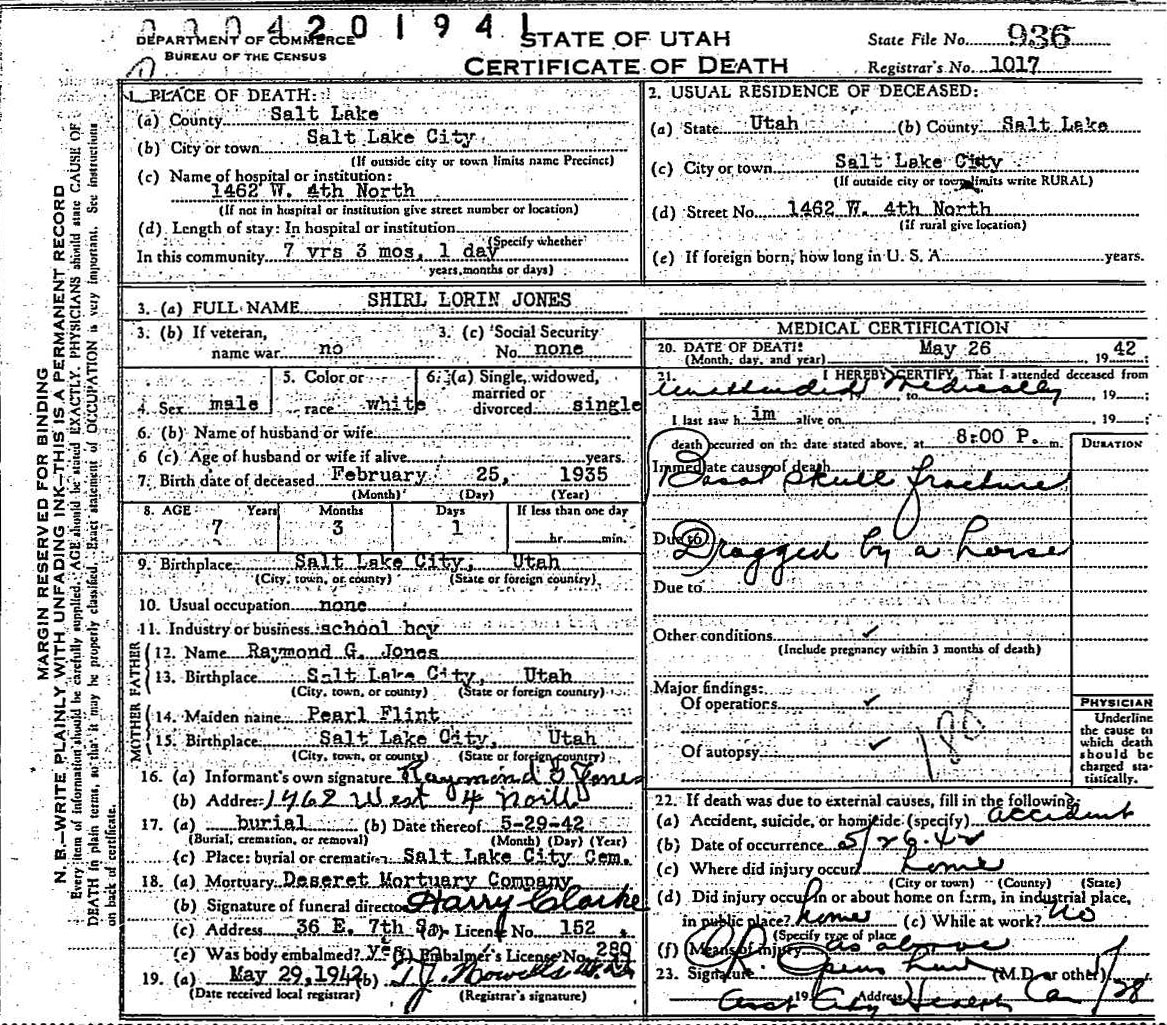 0004201941
DEPARTMENT OF COMMERCE
BUREAU OF THE CENSUS
STATE OF UTAH
CERTIFICATE OF DEATH
State File No. 936
Registrar's No. 1017
MARGIN RESERVED FOR BINDING
N. B.—WRITE PLAINLY WITH UNFADING INK—THIS IS A PERMANENT RECORD
Every item of information should be carefully supplied. AGE should be stated EXACTLY. PHYSICIANS should state CAUSE OF
DEATH in plain terms, so that it may be properly classified. Exact statement of OCCUPATION is very important. See instructions
on back of certificate.
1. PLACE OF DEATH:
(a) County Salt Lake
(b) City or town Salt Lake City
(If outside city or town limits name Precinct)
(c) Name of hospital or institution:
1462 W. 4th North
(If not in hospital or institution give street number or location)
(d) Length of stay: In hospital or institution
(Specify whether
In this community 7 yrs 3 mos, 1 day
years, months or days)
2. USUAL RESIDENCE OF DECEASED:
(a) State Utah (b) County Salt Lake
(c) City or town Salt Lake City
(If outside city or town limits write RURAL)
(d) Street No. 1462 W. 4th North
(If rural give location)
(e) If foreign born, how long in U. S. A. years.
3. (a) FULL NAME SHIRL LORIN JONES
3. (b) If veteran, 3. (c) Social Security
name war no No. none
4. Sex male 5. Color or race white 6. (a) Single, widowed, married or divorced single
6. (b) Name of husband or wife
6 (c) Age of husband or wife if alive years.
7. Birth date of deceased February 25, 1935
(Month) (Day) (Year)
8. AGE Years Months Days If less than one day
7 3 1 hr. min.
9. Birthplace Salt Lake City, Utah
(City, town, or county) (State or foreign country)
10. Usual occupation none
11. Industry or business school boy
FATHER
12. Name Raymond G. Jones
13. Birthplace Salt Lake City, Utah
(City, town, or county) (State or foreign country)
MOTHER
14. Maiden name Pearl Flint
15. Birthplace Salt Lake City, Utah
(City, town, or county) (State or foreign country)
16. (a) Informant's own signature Raymond G Jones
(b) Address 1462 West 4 North
17. (a) burial (b) Date thereof 5-29-42
(Burial, cremation, or removal) (Month) (Day) (Year)
(c) Place: burial or cremation Salt Lake City Cem.
18. (a) Mortuary Deseret Mortuary Company
(b) Signature of funeral director Harry Clarke
(c) Address 36 E. 7th So. (d) License No. 152
(e) Was body embalmed? yes (f) Embalmer's License No. 280
19. (a) May 29, 1942 (b) T.J. Howells
(Date received local registrar) (Registrar's signature)
MEDICAL CERTIFICATION
20. DATE OF DEATH: May 26 , 19 42
(Month, day, and year)
21. I HEREBY CERTIFY, That I attended deceased from
unattended medically to , 19 ;
I last saw h im alive on , 19 ;
death occurred on the date stated above, at 8:00 P. m.
DURATION
Immediate cause of death
Basal skull fracture
Due to Dragged by a horse
Due to
Other conditions ✓
(Include pregnancy within 3 months of death)
Major findings:
Of operations ✓
Of autopsy ✓
PHYSICIAN
Underline
the cause to
which death
should be
charged sta-
tistically.
22. If death was due to external causes, fill in the following:
(a) Accident, suicide, or homicide (specify) accident
(b) Date of occurrence 5/26.42
(c) Where did injury occur? home
(City or town) (County) (State)
(d) Did injury occur in or about home on farm, in industrial place,
in public place? home (e) While at work? No
(Specify type of place)
(f) Means of injury as above
23. Signature (M.D. or other)
19 Address City Health